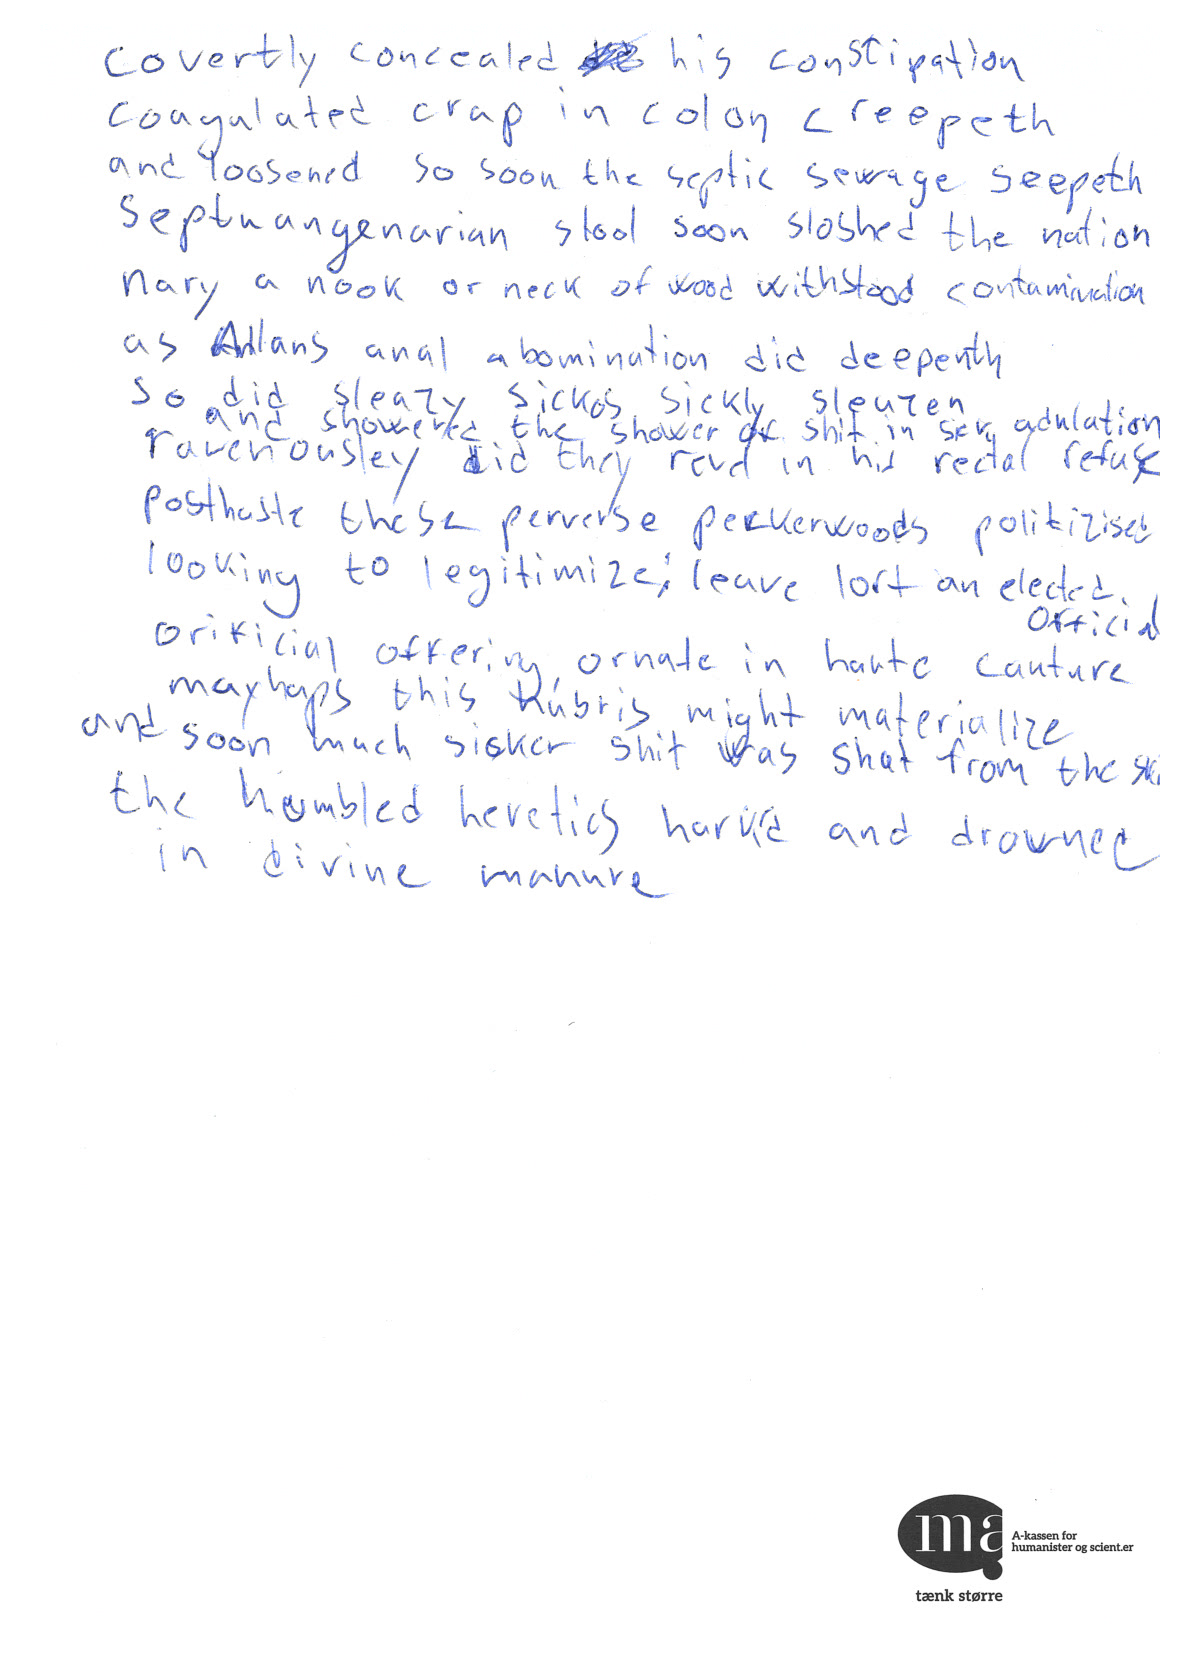 covertly concealed his constipation
coagulated crap in colon creepeth
and loosened so soon the septic sewage seepeth
Septuangenarian stool soon sloshed the nation
nary a nook or neck of wood withstood contamination
as Allans anal abomination did deepenth
So did sleazy sickos sickly sleuzen
and showered the shower of shit in adulation
ravenousley did they revel in his rectal refuse
posthaste these perverse peckerwoods politizised
looking to legitimize; leave lort an elected
official
orificial offering, ornate in haute cauture
mayhaps this hubris might materialize
and soon much sicker shit was shat from the
the humbled heretics hark'd and drowned
in divine manure
ma
A-kassen for
humanister og scient.er
tænk større